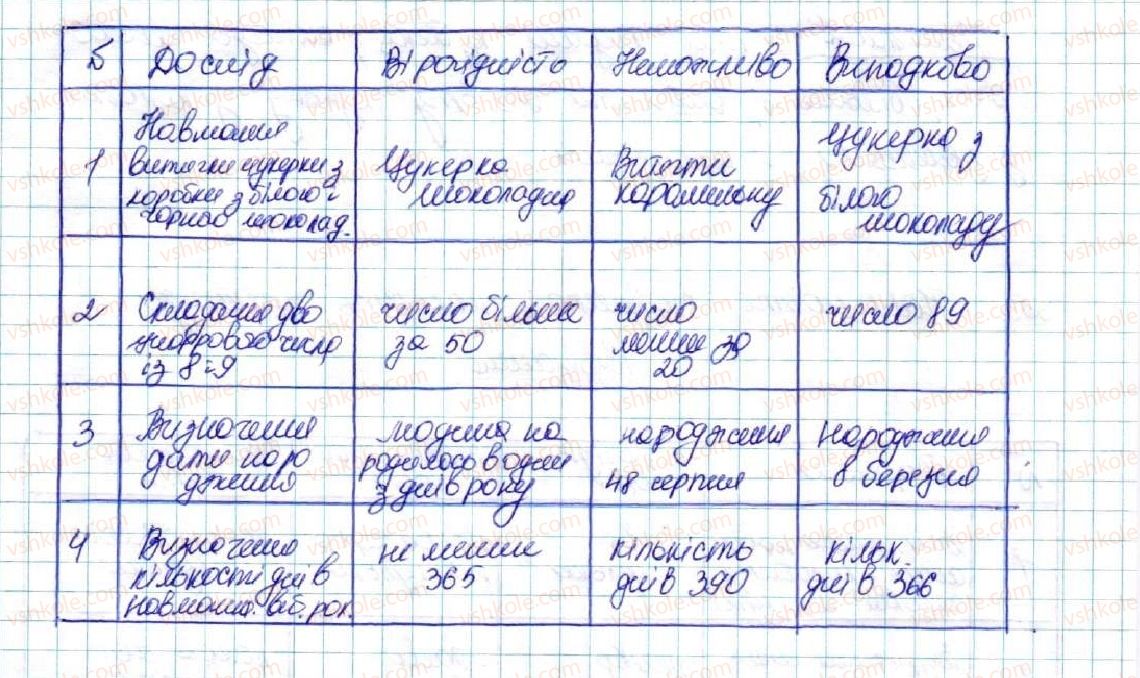 Б Дослід Вірогідність Неможливо Випадково
1 Навмання витягли цукерки з коробки з білого і чорного шоколад. Цукерка шоколадна Витягти карамельку Цукерка з білого шоколаду
2 Складання двоцифрового числа із 8 і 9 число більше за 50 число менше за 20 число 89
3 Визначення дати народження людина народилася в один з днів року народження 48 серпня народження 8 березня
4 Визначення кількості днів в навмання виб. рок. не менше 365 кількість днів 390 кільк. днів 366